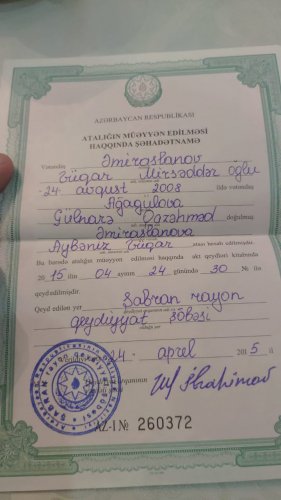 AZƏRBAYCAN RESPUBLİKASI
ATALIĞIN MÜƏYYƏN EDİLMƏSİ
HAQQINDA ŞƏHADƏTNAMƏ
Vətəndaş Əmiraslanov
Vüqar Mirsəddər Oğlu
24 avqust 2008 ildə vətəndaş
Ağagulova
Gülnarə Qəzəhməd doğulmuş
Əmiraslanova
Aybəniz Vüqar atası hesab edilmişdir.
Bu barədə atalığın müəyyən edilməsi haqqında akt qeydləri kitabında
2015 ilin 04 ayının 24 günündə 30 № ilə
qeyd edilmişdir.
Qeyd edilən yer Şabran rayon
qeydiyyat şöbəsi
24 aprel 2015 il
AZ-I № 260372